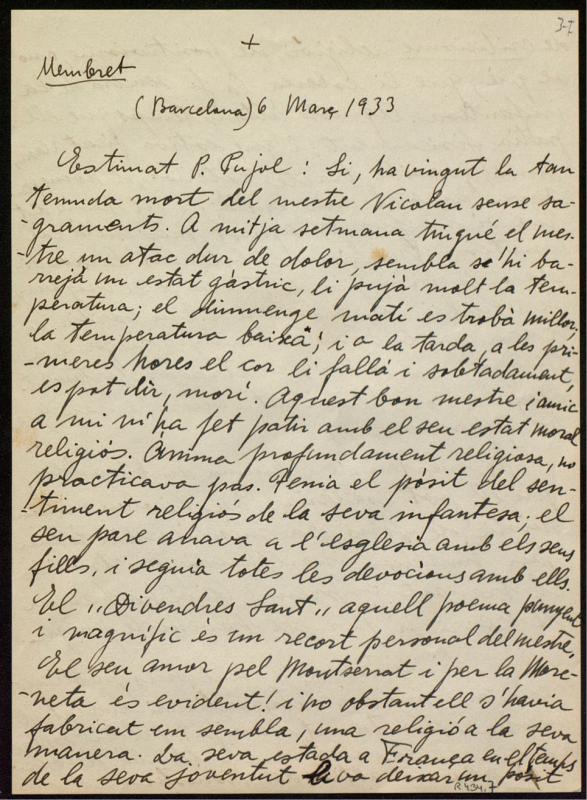 3-7
+
Membret
(Barcelona) 6 Març 1933
Estimat P. Pujol: Si, ha vingut la tan
temuda mort del mestre Nicolau sense sa-
-graments. A mitja setmana tingué el mes-
-tre un atac dur de dolor, sembla se'hi ba-
-rrejá un estat gástric, li pujá molt la tem-
-peratura; el diumenge matí es trobà millor,
la temperatura baixa; i a la tarda, a les pri-
-meres hores el cor li fallá i sobtadament,
es pot dir, morí. Aquest bon mestre i amic
a mi m'ha fet patir amb el seu estat moral
religiós. Anima profundament religiosa, no
practicava pas. Tenia el pòsit del sen-
-timent religiós de la seva infantesa; el
seu pare anava a l'esglesia amb els seus
fills, i seguia totes les devocions amb ells.
El „Divendres Sant„ aquell poema punyent
i magnífic és un recort personal del mestre,
El seu amor pel Montserrat i per la More-
-neta és evident! i no obstant ell s'havia
fabricat em sembla, una religió a la seva
manera. La seva estada a França en el temps
de la seva joventut li va deixar un pòsit
R 434.7